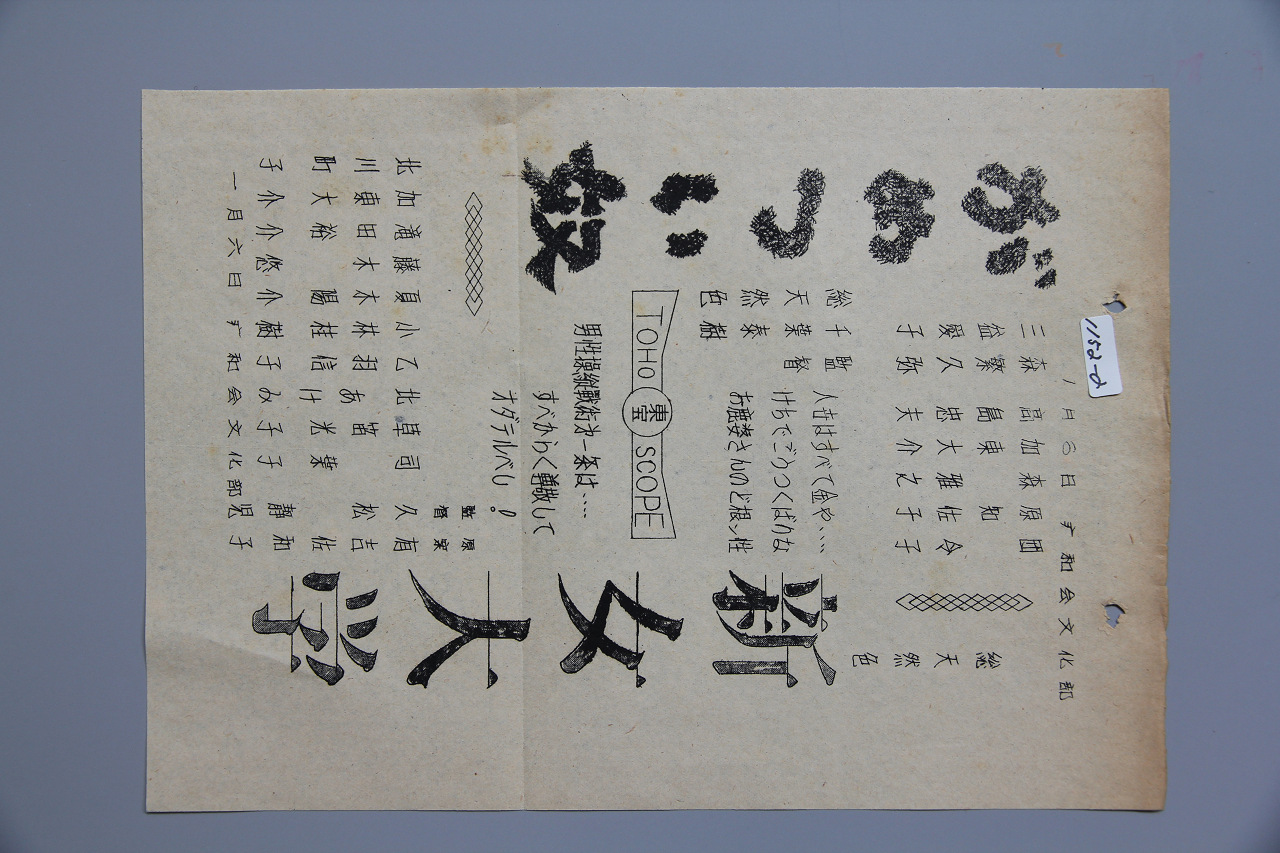 月6日 和会文化部
がめつい奴
三益愛子
森繁久弥
高島忠夫
加東大介
森雅之
原知佐子
団令子
総天然色
監督
千葉泰樹
人生はすべて金や‥‥
けちでごうつくばりな
お鹿婆さんのど根ッ性
総天然色
TOHO 東宝 SCOPE
新女大学
男性操縦戦術才一条は‥‥
すべからく尊敬して
オダテルベし!
原案
有吉佐和子
監督
久松静児
司葉子
草笛光子
北あけみ
乙羽信子
小林桂樹
夏木陽介
藤木悠
滝田裕介
加東大介
北川町子
一月六日 和会文化部
1152-2